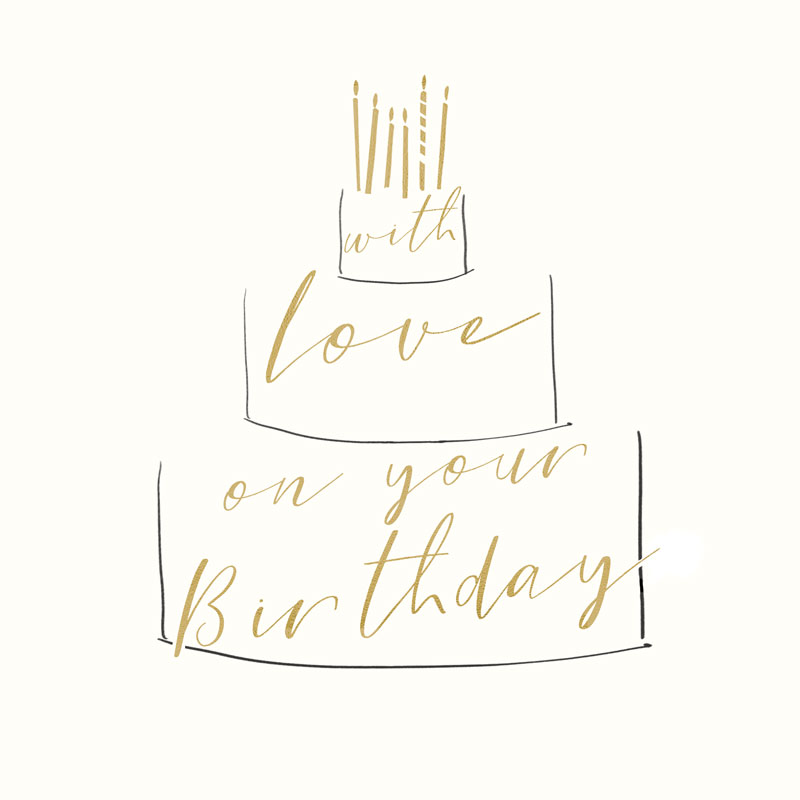 with
love
on your
Birthday